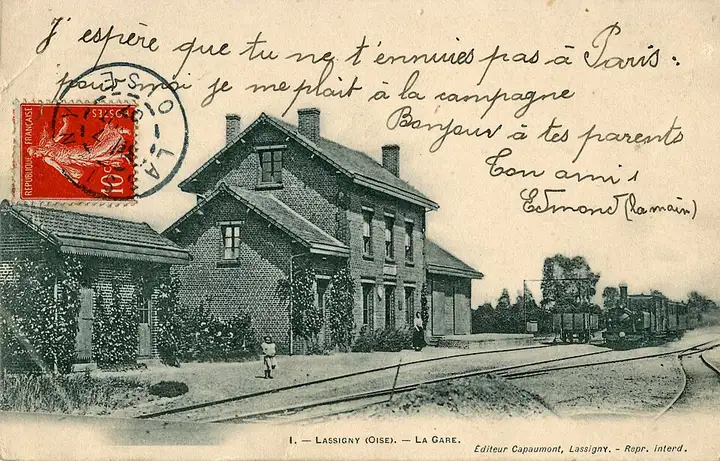 J'espère que tu ne t'ennuies pas à Paris:
pour moi je me plait à la campagne
Bonjour à tes parents
Ton ami
Edmond (la main)
REPUBLIQUE FRANÇAISE
POSTES
10c
LASSIGNY (OISE). — LA GARE.
Éditeur Capaumont, Lassigny. - Repr. interd.